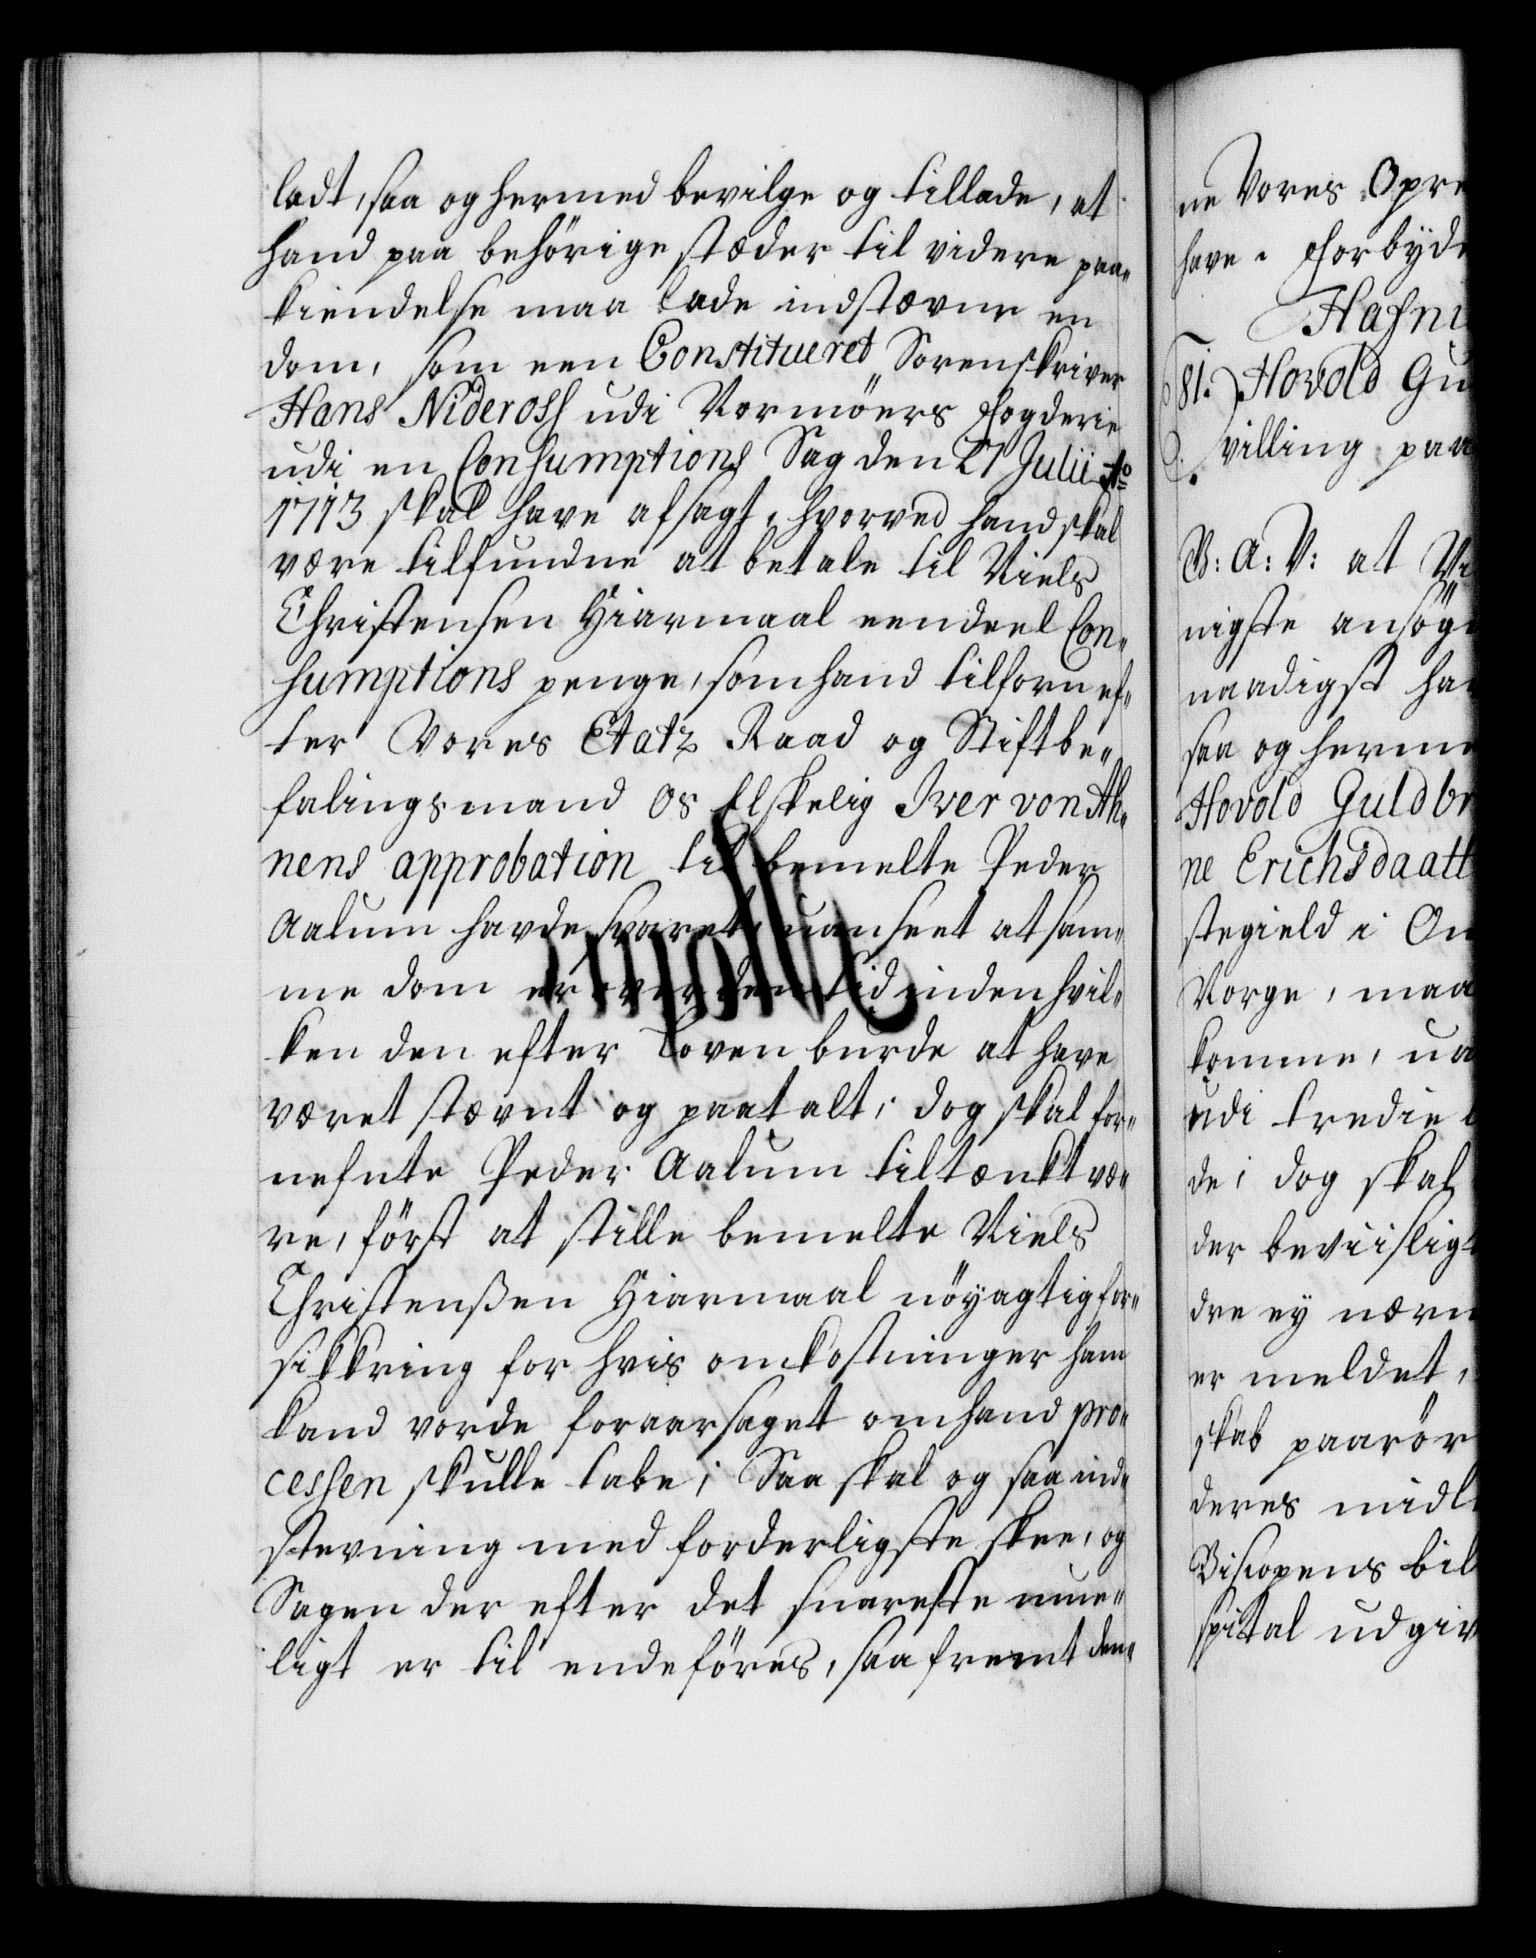 ladt, saa og hermed bevilge og tillade, at
hand paa behörige stæder til videre paa„
kiendelse maa lade indstævne en
dom, som een Constitueret Sorenskriver
Hans Niderosf udi Normöers Fogderie
udi en Consumptions Sag den 21 Julii Ao
1713 skal have afsagt, hvorved hand skal
være tilfunden at betale til Niels
Christensen Hiarmaal eendeel Con„
sumptions penge, som hand tilforn ef„
ter Vores Etatz Raad og Stiftbe„
falingsmand Os Elskelig Iver von Ah„
nens approbation til bemelte Peder
Aalum havde svaret, uanseet at sam„
me dom er over den tid inden hvil„
ken den efter Loven burde at have
været stævnt og paatalt; dog skal for„
nefnte Peder Aalum tiltænkt væ„
re, först at stille bemelte Niels
Christenßen Hiarmaal nöyagtig for„
sikkring for hvis omkostninger ham
kand vorde foraarsaget om hand pro„
cessen skulle tabe; Saa skal og saa ind„
stevning med forderligste skee, og
Sagen der efter det snareste mue„
ligt er til endeföres, saa fremt den„
ne Vores Opre
have. Forbyde
Hafni
81. Hovold Gu
villing paa
V: A: V: at Vi
nigste ansög
naadigst ha
saa og herme
Hovold Guldbr
ne Erichsdaatt
stegield i
Norge, maa
komme, ua
udi tredie l
de; dog skal
der beviislig
dre ey nærm
er meldet,
skab paarör
deres midl
Biscopens bil
spital udgiv